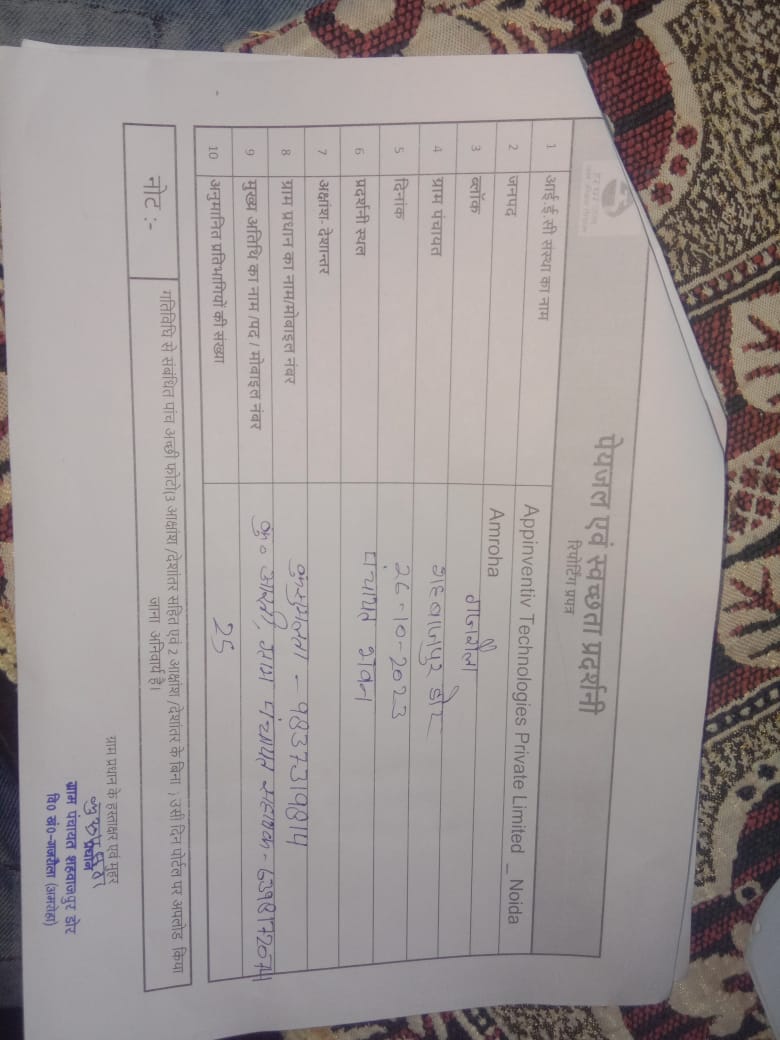 पेयजल एवं स्वच्छता प्रदर्शनी
रिपोर्टिंग प्रपत्र
1 आई.ई.सी संस्था का नाम Appinventiv Technologies Private Limited _ Noida
2 जनपद Amroha
3 ब्लॉक गजरौला
4 ग्राम पंचायत शहवाजपुर डोर
5 दिनांक 26-10-2023
6 प्रदर्शनी स्थल पंचायत भवन
7 अक्षांश- देशान्तर
8 ग्राम प्रधान का नाम/मोबाइल नंबर - 9837319814
9 मुख्य अतिथि का नाम /पद / मोबाइल नंबर कु० आरती, ग्राम पंचायत सहायक-
10 अनुमानित प्रतिभागियों की संख्या 25
नोट :- गतिविधि से संबंधित पांच अच्छी फोटो(3 आक्षांश /देशांतर सहित एवं 2 आक्षांश /देशांतर के बिना ) उसी दिन पोर्टल पर अपलोड किया
जाना अनिवार्य है।
ग्राम प्रधान के हस्ताक्षर एवं मुहर
प्रधान
ग्राम पंचायत शहवाजपुर डोर
वि० खं०-गजरौला (अमरोहा)